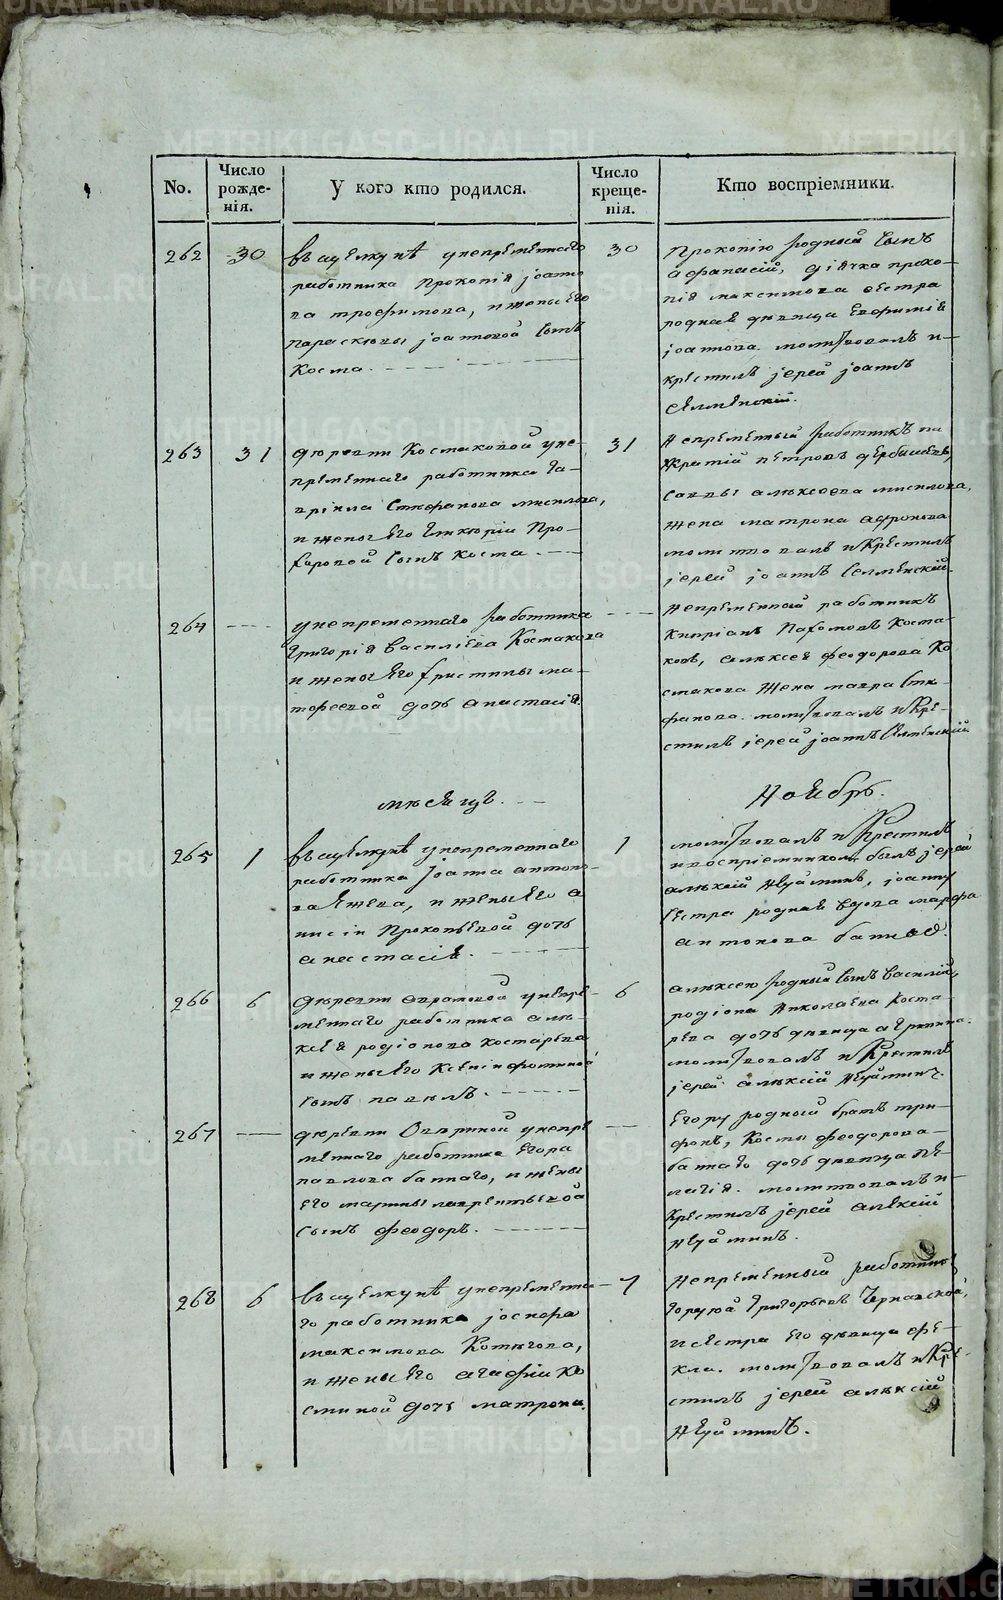 No.
Число рожде-нія.
У кого кто родился.
Число креще-нія.
Кто воспріемники.
262
30
въ щелкунѣ унепременнаго
работника Прокопія іоанно
ва трофимова, и жены его
параскевы іоанновой сынъ
Косма.
30
Прокопію родный сынъ
афанасій, діячка проко-
пія максимова сестра
родная дѣвица Евфимія
іоаннова. молитвовалъ и
крестилъ іерей іоаннъ
263
31
дюревни Космаковой уне-
пременнаго работника га-
вріила Стефанова мисилова,
и жены его гликеріи Про-
хоровой сынъ Косма.
31
Непременный работникъ
петровъ
Саввы алексеева мисилова,
жена матрона афонова
молитвовалъ и Крестилъ
іерей іоаннъ
264
унепременнаго работника
григорія василіева Космакова
и жены его христины ма-
тофеевой дочь анастасія.
Непременный работникъ
Кипріанъ Пахомовъ Косма-
ковъ, алексея феодорова Ко
смакова жена мавра Сте-
фанова. молитвовалъ и Кре-
стилъ іерей іоаннъ
месяцъ.
Ноябрь.
265
1
въ щелкунѣ унепременнаго
работника іоанна антоно-
ва Ежева, и жены его а
нисіи Прокопьевой дочь
анастасія.
1
молитвовалъ и Крестилъ
и воспріемникомъ былъ іерей
алексій Неуйминъ, іоанну
сестра родная вдова марфа
антонова
266
6
дюревни аврамовой унепре-
меннаго работника але-
ксея родіонова костарева
и жены его Ксеніи фоминой
сынъ павелъ.
6
алексею родный сынъ василій,
родіона Николаева Коста-
рева дочь дѣвица
молитвовалъ и Крестилъ
іерей алексій Неуйминъ.
267
дюревни Овериной унепре
меннаго работника Егора
павлова баннаго, и жены
его марины лаврентьевой
сынъ феодоръ.
Егору родный братъ три-
фонъ, Космы феодорова
баннаго дочь дѣвица пе-
лагія. молитвовалъ и
Крестилъ іерей алексій
Неуйминъ.
268
6
въ щелкунѣ унепременна
го работника іосифа
максимова Котюгова,
и жены его агафіи Ко
сминой дочь матрона.
7
Непременный работникъ
григорьевъ Чернавской,
и сестра его дѣвица фе-
кла. молитвовалъ и Кре-
стилъ іерей алексій
Неуйминъ.
METRIKI.GASO-URAL.RU